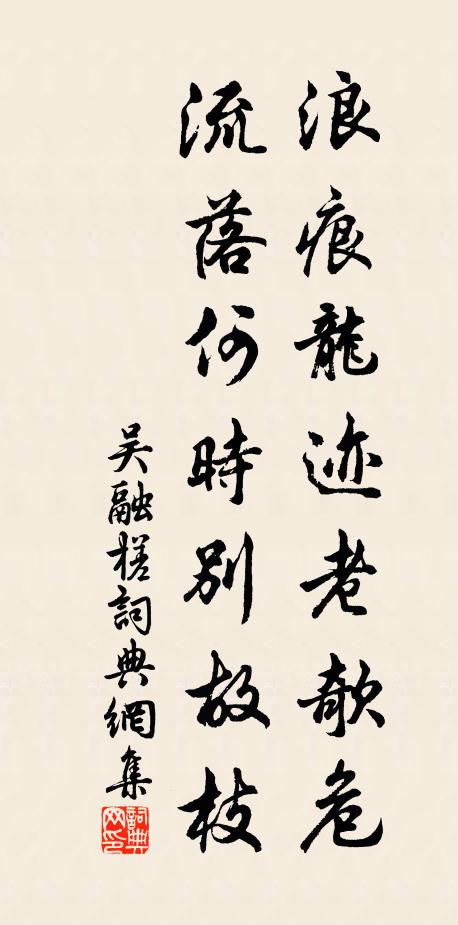 浪痕龍迹老欹危
流落何時別故枝
吴融槎詞典網集
詞典网印